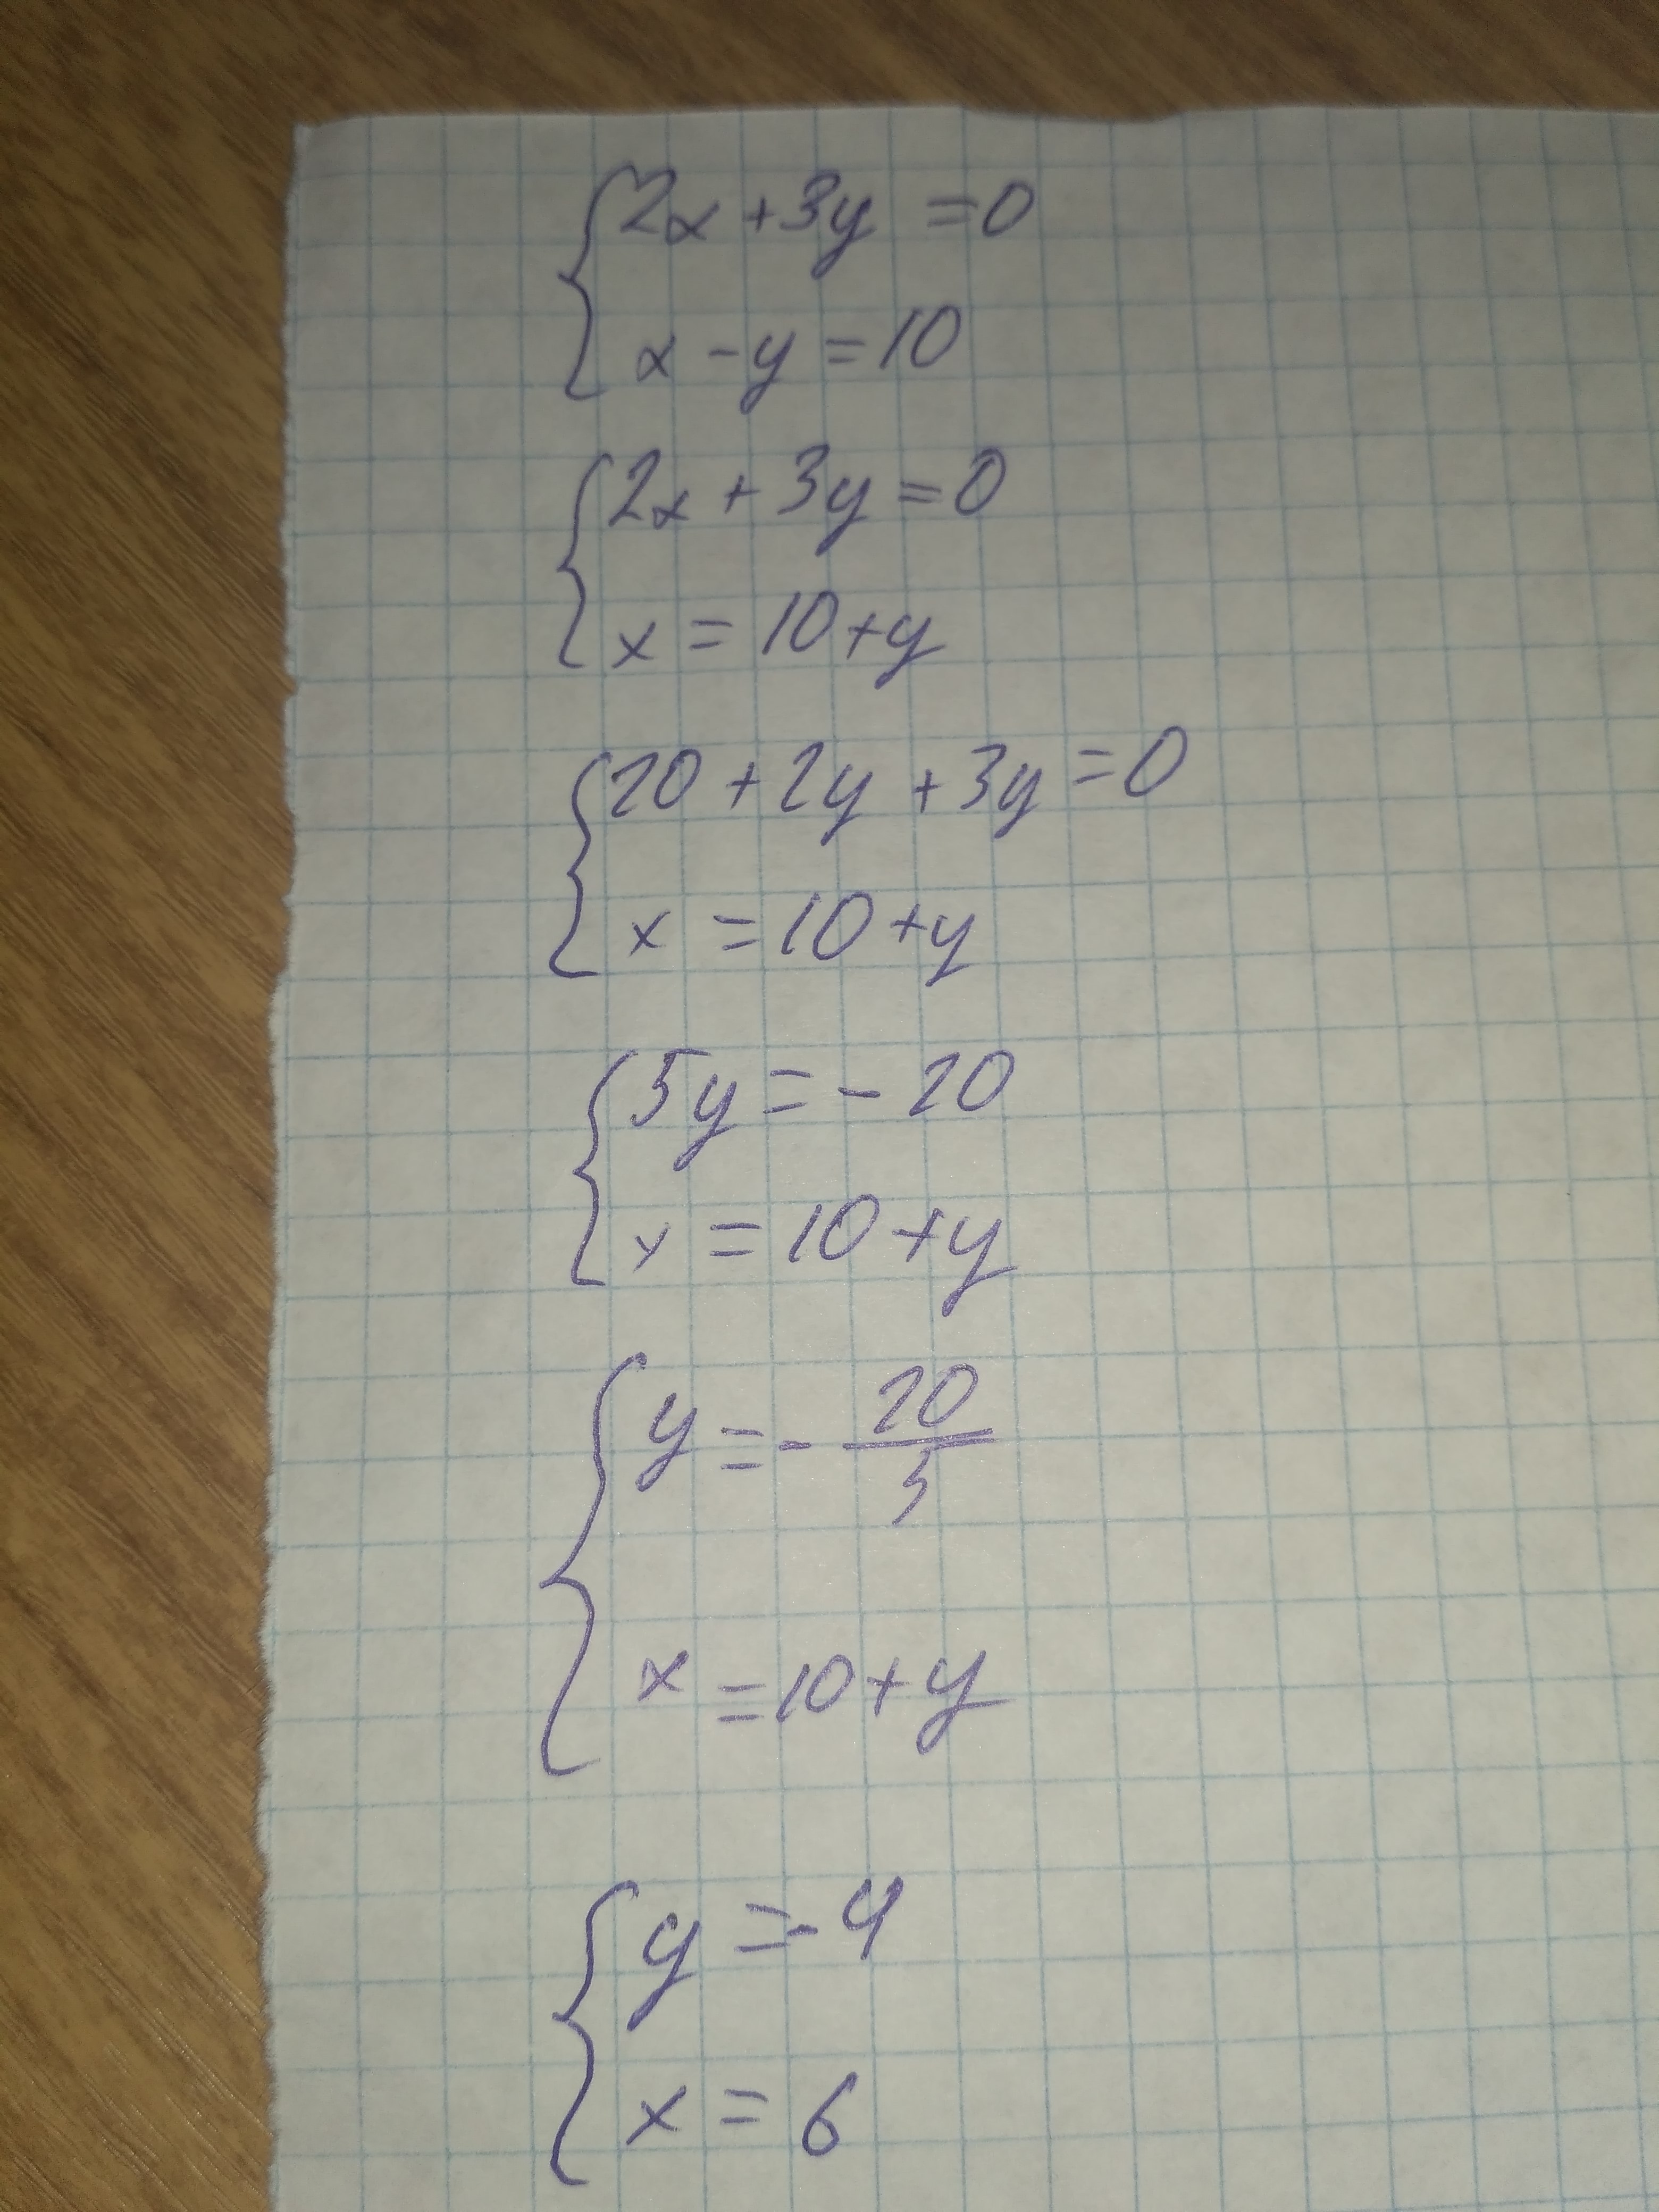 2x + 3y = 0
x - y = 10
2x + 3y = 0
x = 10 + y
20 + 2y + 3y = 0
x = 10 + y
5y = - 20
x = 10 + y
y = - 20/5
x = 10 + y
y = - 4
x = 6